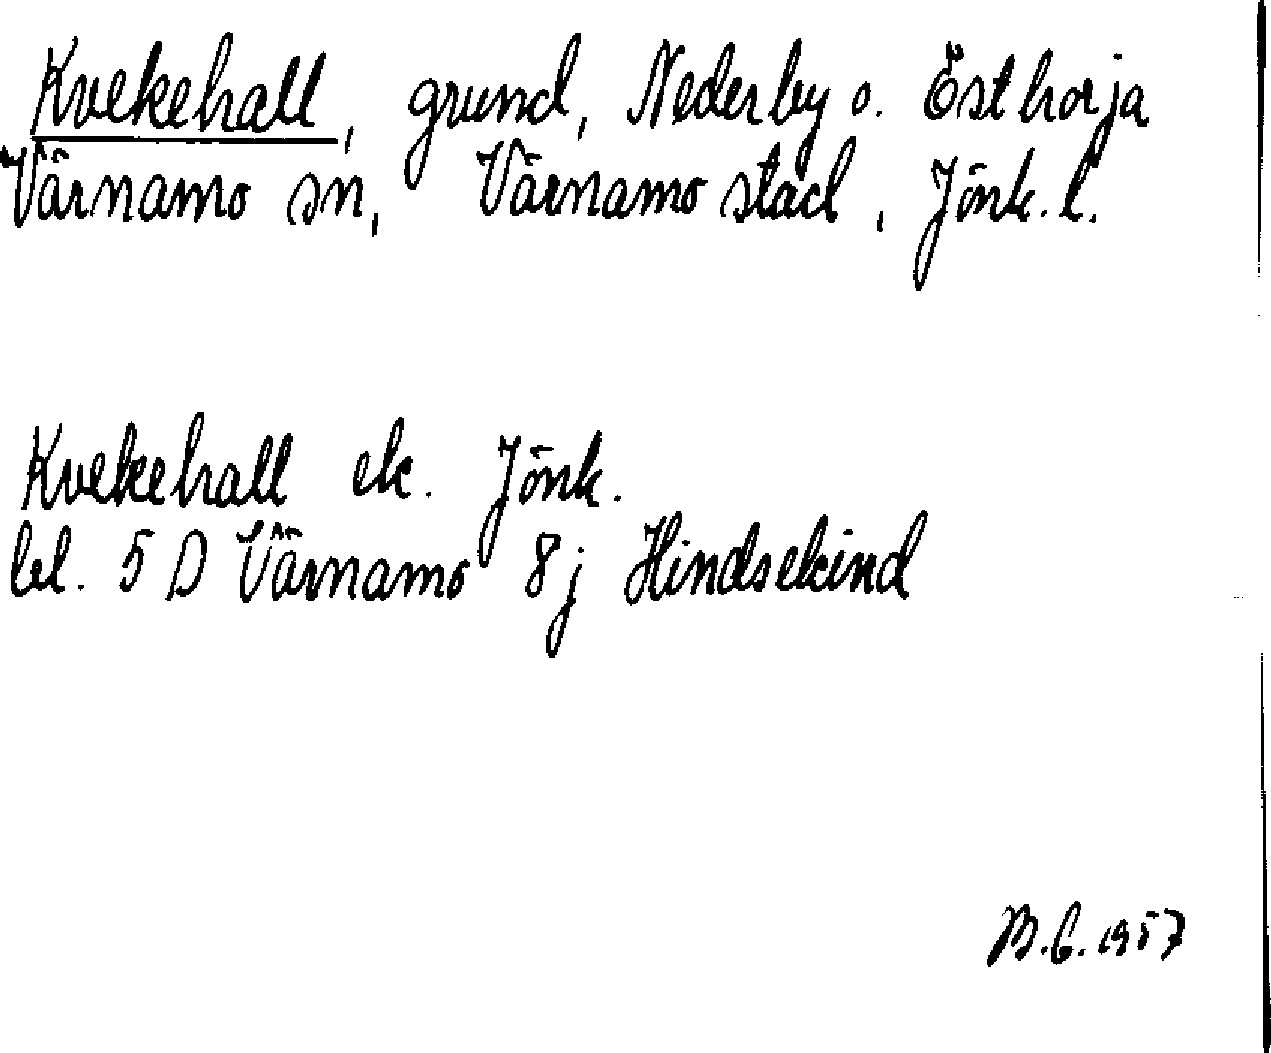 Kvekehall, grund, Nederby o. Östhorja
Värnamo sn, Värnamo stad, Jönk. l.
Kvekehall ek. Jönk.
bl. 5 D Värnamo 8 j Hindsekind
B.G. 1957